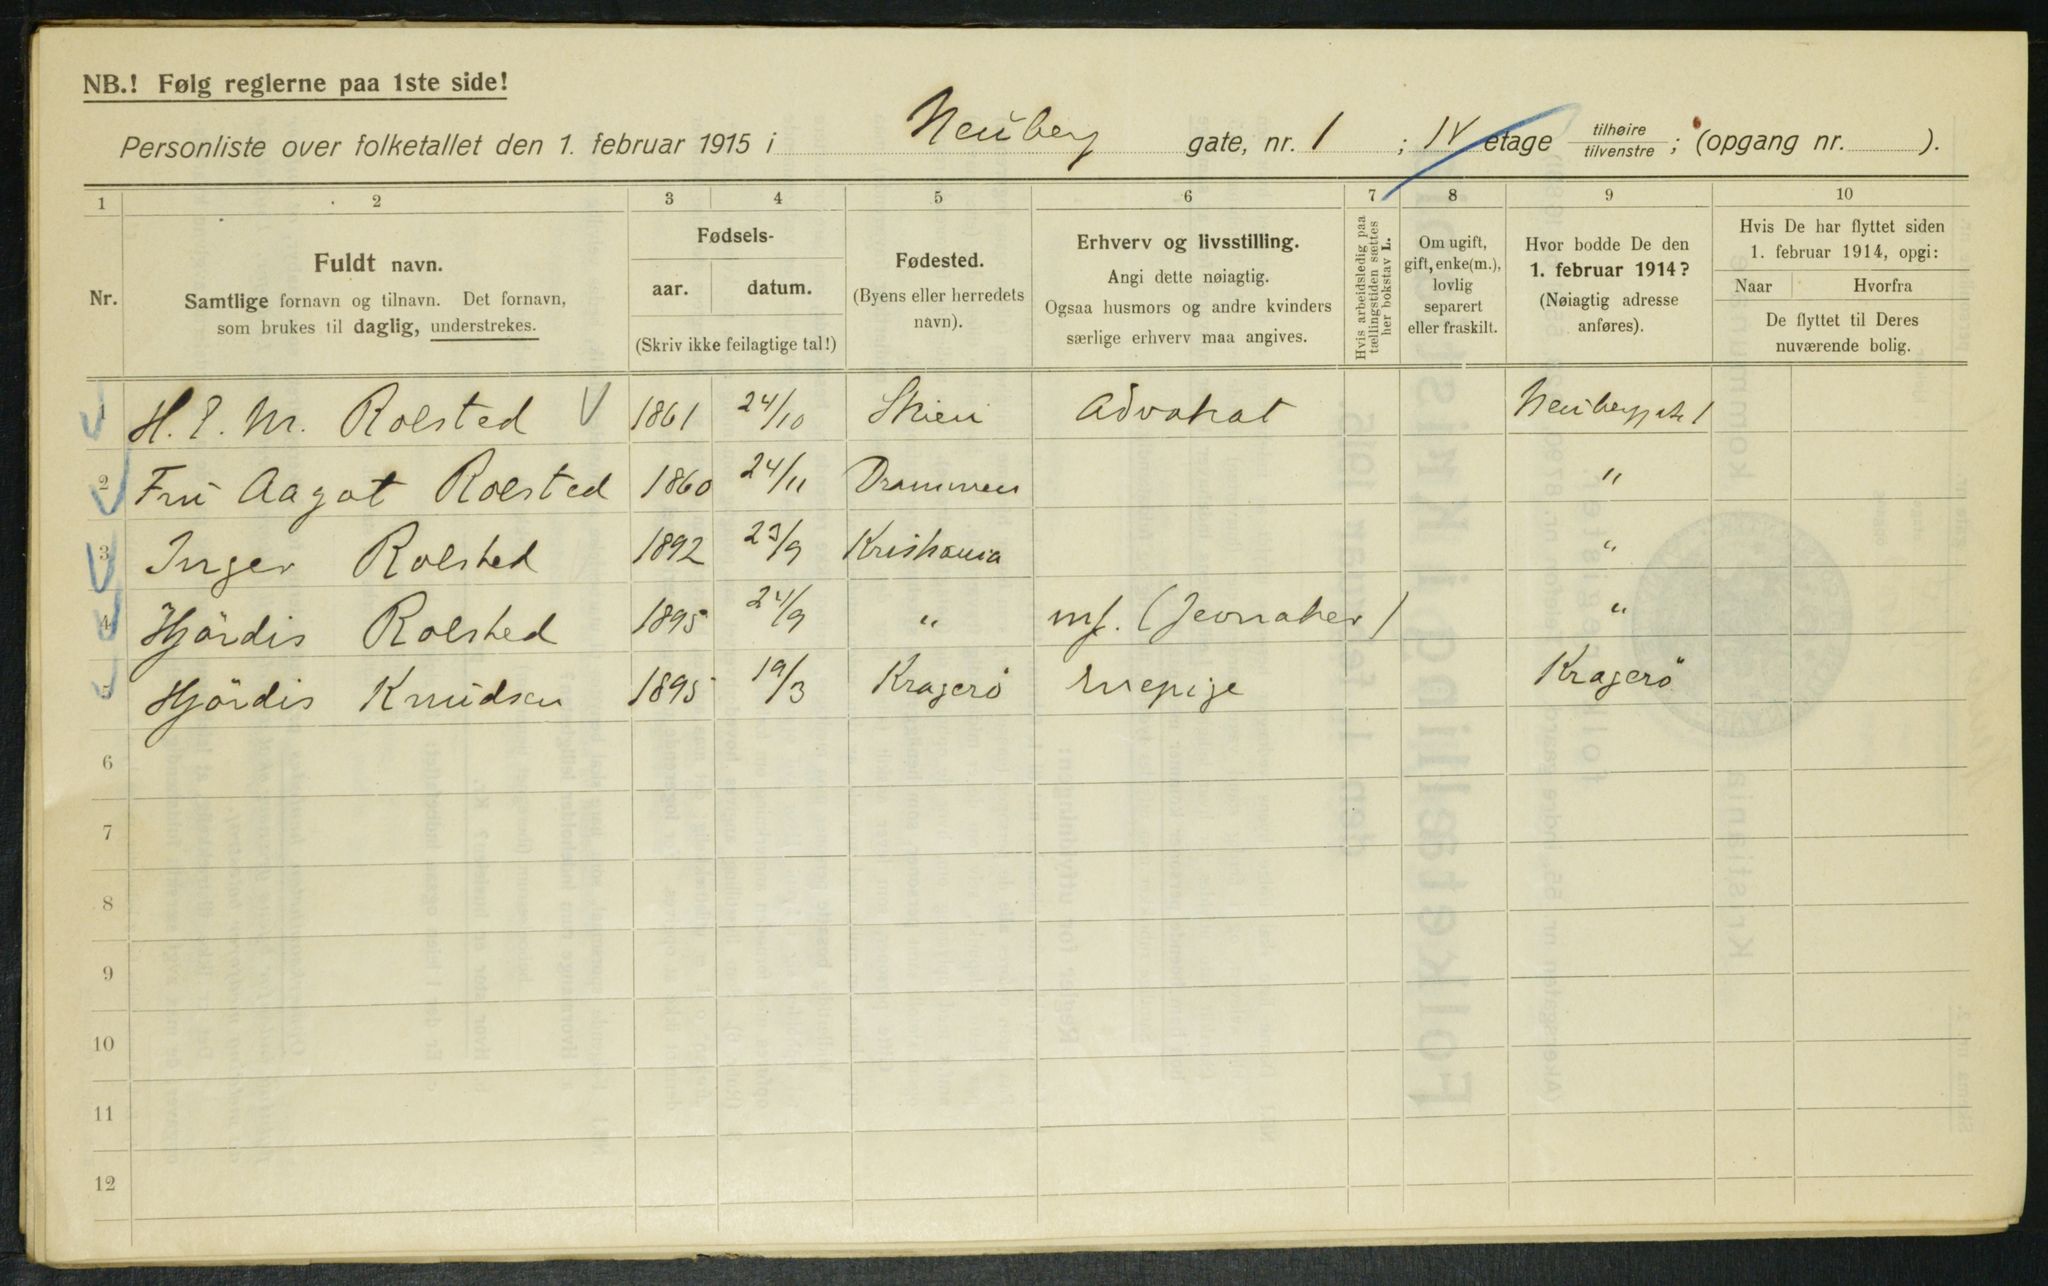 NB.! Følg reglerne paa 1ste side!
Personliste over folketallet den 1. februar 1915 i Neuberg gate, nr. 1 ; IV etage tilhøire tilvenstre ; (opgang nr. ).
1 2 3 4 5 6 7 8 9 10
Nr.
Fuldt navn.
Samtlige fornavn og tilnavn. Det fornavn,
som brukes til daglig, understrekes.
Fødsels-
aar. datum.
(Skriv ikke feilagtige tal!)
Fødested.
(Byens eller herredets
navn).
Erhverv og livsstilling.
Angi dette nøiagtig.
Ogsaa husmors og andre kvinders
særlige erhverv maa angives.
Hvis arbeidsledig paa
tællingstiden sættes
her bokstav L.
Om ugift,
gift, enke(m.),
lovlig
separert
eller fraskilt.
Hvor bodde De den
1. februar 1914?
(Nøiagtig adresse
anføres).
Hvis De har flyttet siden
1. februar 1914, opgi:
Naar Hvorfra
De flyttet til Deres
nuværende bolig.
1 H. E. M. Rolsted 1861 24/10 Skien Advokat Neuberggate 1
2 Fru Aagot Rolsted 1860 24/11 Drammen "
3 Inger Rolsted 1892 23/9 Kristiania "
4 Hjördis Rolsted 1895 24/9 " mf. (Jevnaker) "
5 Hjördis Knudsen 1895 19/3 Kragerö Enepige Kragerö
6
7
8
9
10
11
12